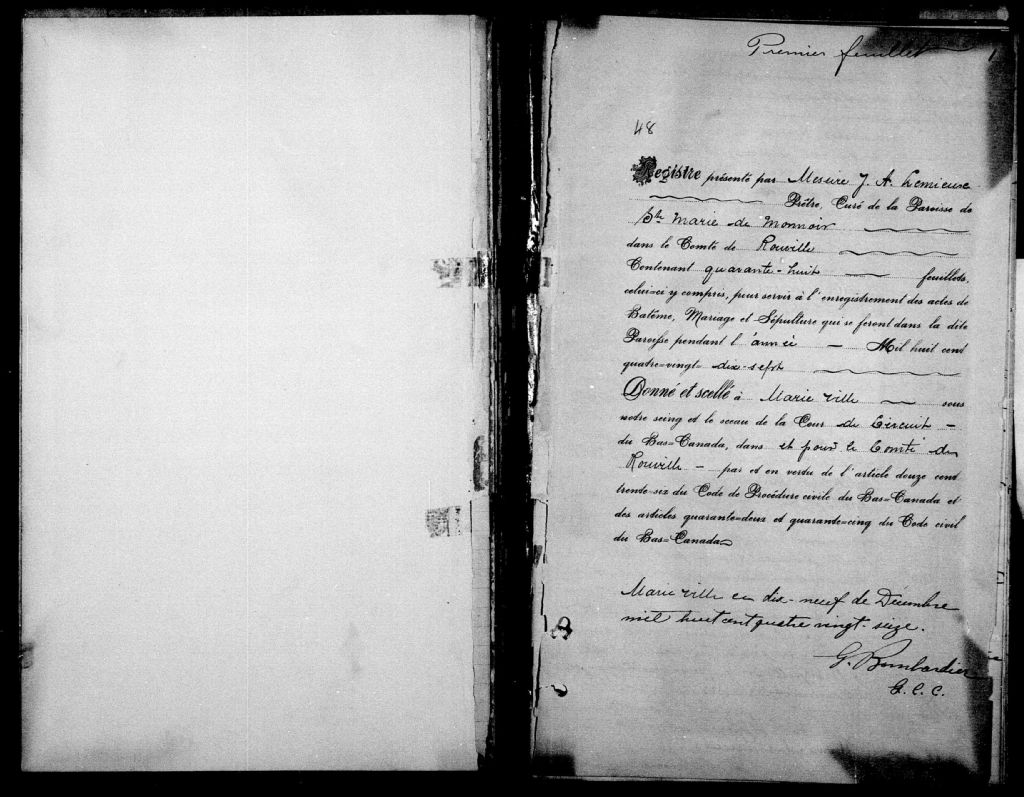 Premier feuillet
48
Registre présenté par Messire J. A. Lemieux
Prêtre, Curé de la Paroisse de
Ste Marie de Monnoir
dans le Comté de Rouville
Contenant quarante-huit feuillets,
celui=ci y compris, pour servir à l'enregistrement des actes de
Batême, Mariage et Sépulture qui se feront dans la dite
Paroisse pendant l'année Mil huit cent
quatre=vingt= dix-sept
Donné et scellé à Marieville sous
notre seing et le sceau de la Cour de Circuit
du Bas=Canada, dans et pour le Comté de
Rouville par et en vertu de l'article douze cent
trente-six du Code de Procédure civile du Bas=Canada et
des articles quarante=deux et quarante=cinq du Code civil
du Bas=Canada
Marieville ce dix-neuf de Decembre
mil huit cent quatre vingt-seize.
G. Bombardier
G. C. C.